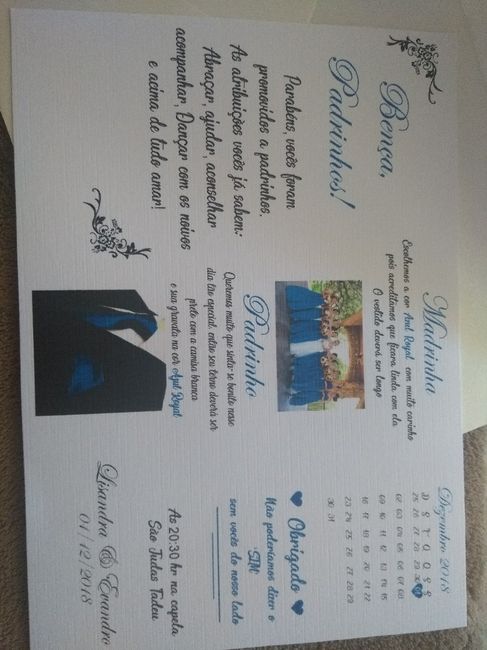 Bença,
Padrinhos!
Parabéns, vocês foram
promovidos a padrinhos.
As atribuições vocês já sabem:
Abraçar, ajudar, aconselhar
acompanhar, Dançar com os noivos
e acima de tudo amar!
Madrinha
Escolhemos a cor Azul Royal com muito carinho
pois acreditamos que ficara linda com ela
O vestido deverá ser longo
Padrinho
Queremos muito que sinta-se bonito nesse
dia tão especial, então seu terno deverá ser
preto com a camisa branca
e sua gravata na cor Azul Royal
Dezembro 2018
D S T Q Q S S
25 26 27 28 29 30 01
02 03 04 05 06 07 08
09 10 11 12 13 14 15
16 17 18 19 20 21 22
23 24 25 26 27 28 29
30 31
Obrigado
Não poderíamos dizer o
SIM
sem vocês do nosso lado
As 20:30 hr na capela
São Judas Tadeu
Lisandra & Evandro
01/12/2018